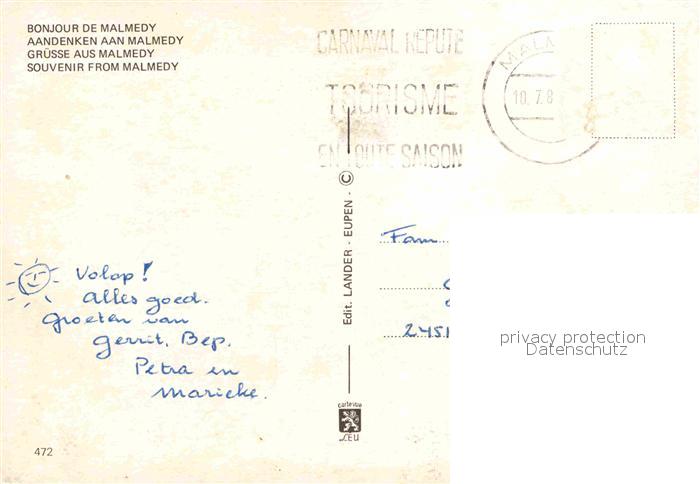 BONJOUR DE MALMEDY
AANDENKEN AAN MALMEDY
GRÜSSE AUS MALMEDY
SOUVENIR FROM MALMEDY
CARNAVAL REPUTE
TOURISME
EN TOUTE SAISON
MALM
10.7.8
Edit. LANDER - EUPEN - ©
Fam
2451
Volop!
Alles goed.
Groeten van
Gerrit, Bep.
Petra en
Marieke.
privacy protection
Datenschutz
cartevue
LEU
472